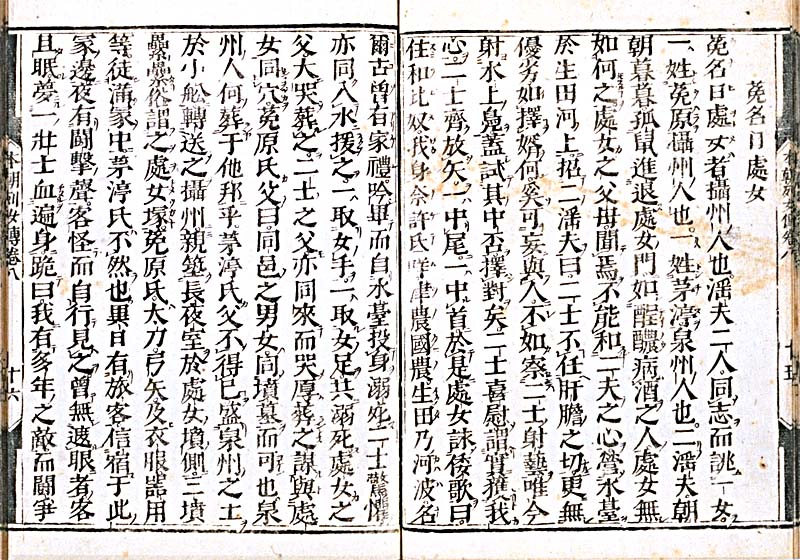 菟名日處女
菟名日處女者攝州人也滛夫二人同志而誂一女
一姓菟原攝州人也一姓茅渟泉州人也二滛夫朝
朝暮暮孤鼠進退處女門如酲醲病酒之人處女無
如何之處女之父母聞焉不能和二夫之心營水臺
於生田河上招二滛夫曰二士不任肝膽之切更無
優劣如擇婿何奚可妄與人不如察二士射藝唯今
射水上鳧蓋試其中否擇對矣二士喜慰謂實獲我
心二士齊放矢一中尾一中首於是處女詠倭歌曰
住和比奴我身奈許氐咩津農國農生田乃河波名
爾古曾有家禮吟畢而自水臺投身溺死二士驚懼
亦同入水援之一取女手一取女足共溺死處女之
父大哭葬之二士之父亦同來而哭厚葬之謀與處
女同穴菟原氏父曰同邑之男女同墳墓而可也泉
州人何葬于他邦乎茅渟氏父不得已盛泉州之土
於小舩轉送之攝州親築長夜室於處女墳側二墳
纍纍俗謂之處女塚菟原氏太刀弓矢及衣服器用
等徒滿冢中茅渟氏不然也異日有旅客信宿于此
冢邊夜有鬪擊聲客怪而自行見之曾無遮眼者客
且眠夢一壯士血遍身跪曰我有多年之敵而鬪爭
本朝列女傳卷八
十六